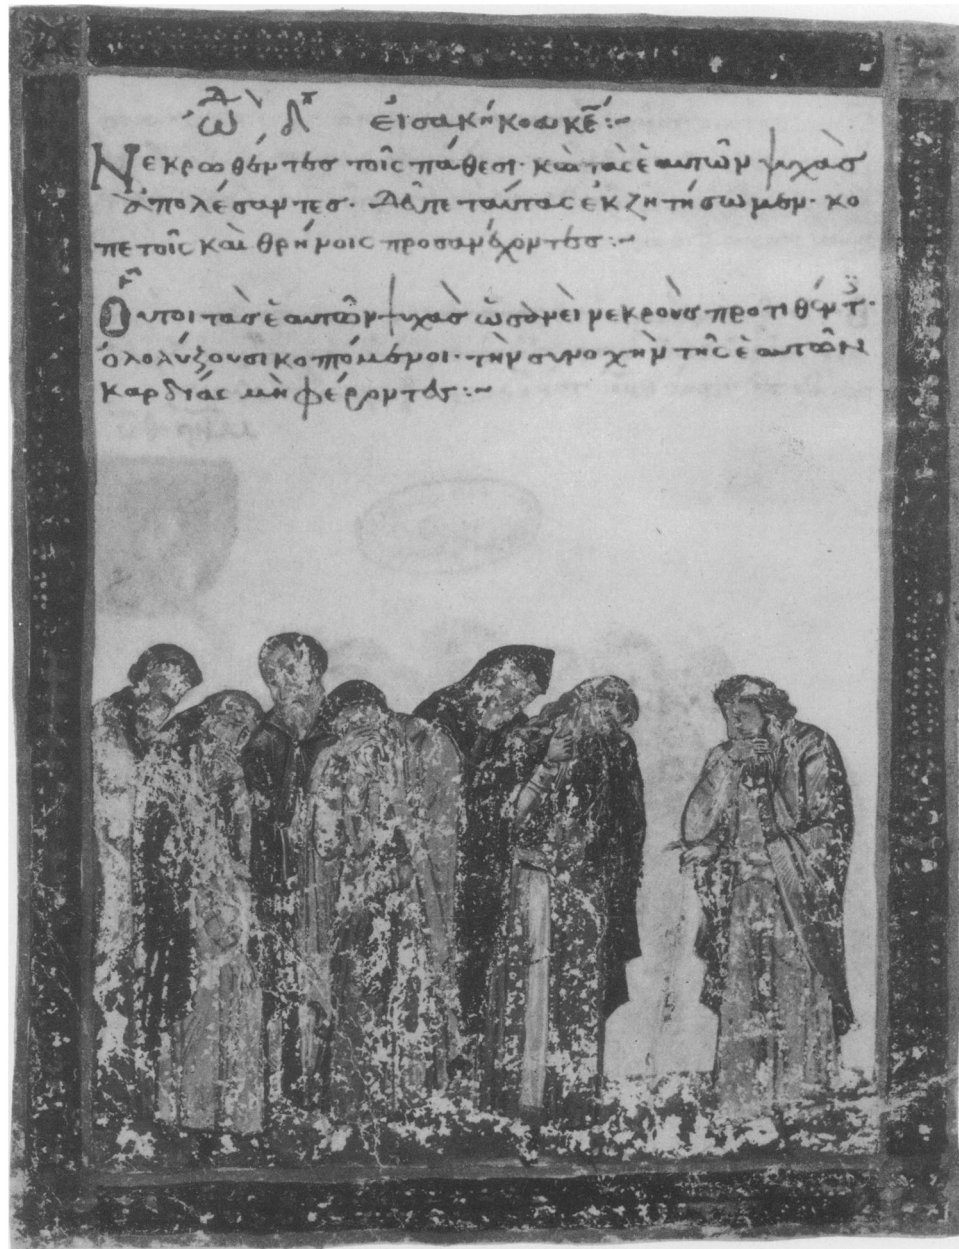 ᾠδὴ δ εἰσακήκοα κε:~
Νεκρωθέντες τοῖς πάθεσι· καὶ τὰς ἑαυτῶν ψυχὰσ
ἀπολέσαντες· δεῦτε ταύτας ἐκζητήσωμεν· κο
πετοῖς καὶ θρήνοις προσανέχοντες:~
Οὗτοι τὰς ἑαυτῶν ψυχὰσ ὡσανεὶ νεκροὺς προτιθέντ·
ὀλολύζουσι κοπτόμενοι· τὴν συνοχὴν τῆς ἑαυτῶν
καρδίας μὴ φέροντες:~